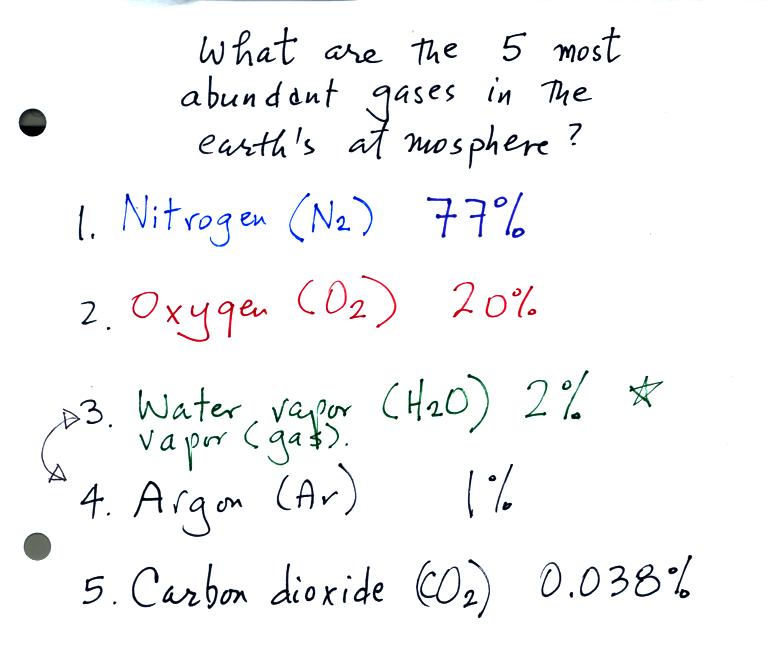 What are the 5 most
abundant gases in the
earth's atmosphere?
1. Nitrogen (N2) 77%
2. Oxygen (O2) 20%
3. Water vapor (H2O) 2% ☆
vapor (gas).
4. Argon (Ar) 1%
5. Carbon dioxide (CO2) 0.038%